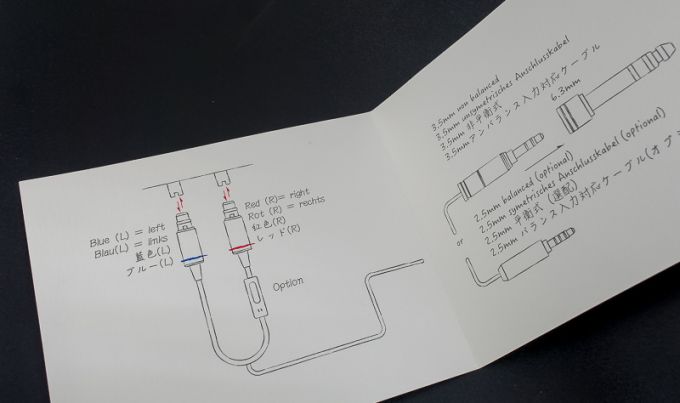 Blue (L) = left
Blau(L) = links
藍色(L)
ブルー(L)
Red (R)= right
Rot (R) = rechts
紅色(R)
レッド(R)
Option
3.5mm non balanced
3.5mm unsymetrisches Anschlusskabel
3.5mm 非平衡式
3.5mmアンバランス入力対応ケーブル
6.3mm
or
2.5mm balanced (optional)
2.5mm symetrisches Anschlusskabel (optional)
2.5mm 平衡式 (選配)
2.5mm バランス入力対応ケーブル(オプ